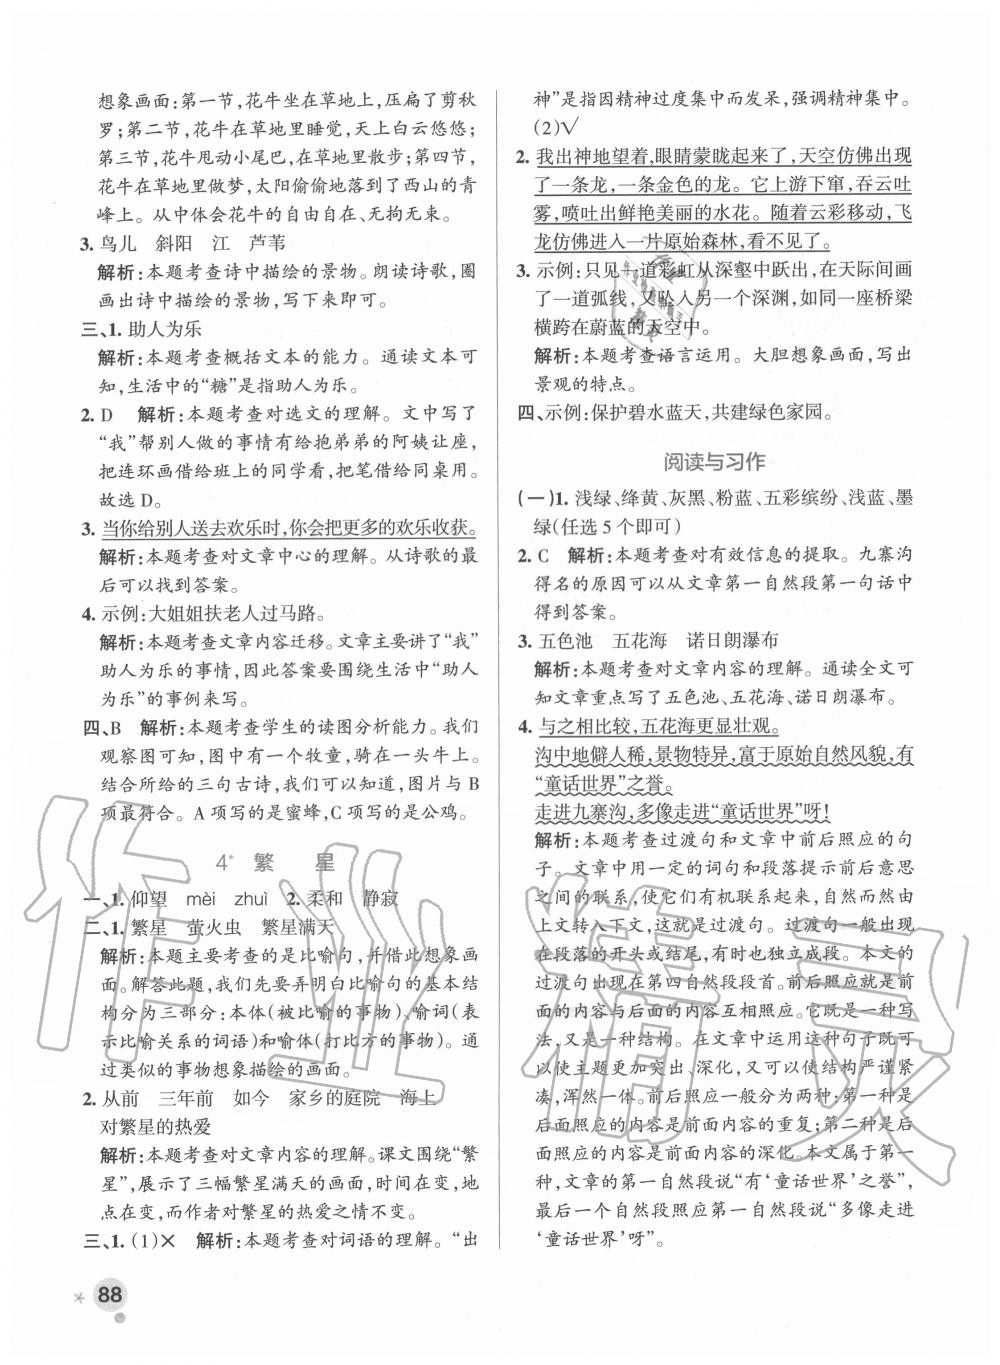 想象画面:第一节,花牛坐在草地上,压扁了剪秋
罗;第二节,花牛在草地里睡觉,天上白云悠悠;
第三节,花牛甩动小尾巴,在草地里散步;第四节,
花牛在草地里做梦,太阳偷偷地落到了西山的青
峰上。从中体会花牛的自由自在、无拘无束。
3. 鸟儿 斜阳 江 芦苇
解析:本题考查诗中描绘的景物。朗读诗歌,圈
画出诗中描绘的景物,写下来即可。
三、1. 助人为乐
解析:本题考查概括文本的能力。通读文本可
知,生活中的“糖”是指助人为乐。
2. D 解析:本题考查对选文的理解。文中写了
“我”帮别人做的事情有给抱弟弟的阿姨让座,
把连环画借给班上的同学看,把笔借给同桌用。
故选 D。
3. 当你给别人送去欢乐时,你会把更多的欢乐收获。
解析:本题考查对文章中心的理解。从诗歌的最
后可以找到答案。
4. 示例:大姐姐扶老人过马路。
解析:本题考查文章内容迁移。文章主要讲了“我”
助人为乐的事情,因此答案要围绕生活中“助人
为乐”的事例来写。
四、B 解析:本题考查学生的读图分析能力。我们
观察图可知,图中有一个牧童,骑在一头牛上。
结合所给的三句古诗,我们可以知道,图片与 B
项最符合。A 项写的是蜜蜂,C 项写的是公鸡。
4* 繁 星
一、1. 仰望 mèi zhuì 2. 柔和 静寂
二、1. 繁星 萤火虫 繁星满天
解析:本题主要考查的是比喻句,并借此想象画
面。解答此题,我们先要弄明白比喻句的基本结
构分为三部分:本体(被比喻的事物)、喻词(表
示比喻关系的词语)和喻体(打比方的事物)。通
过类似的事物想象描绘的画面。
2. 从前 三年前 如今 家乡的庭院 海上
对繁星的热爱
解析:本题考查对文章内容的理解。课文围绕“繁
星”,展示了三幅繁星满天的画面,时间在变,地
点在变,而作者对繁星的热爱之情不变。
三、1. (1)× 解析:本题考查对词语的理解。“出
神”是指因精神过度集中而发呆,强调精神集中。
(2)√
2. 我出神地望着,眼睛蒙眬起来了,天空仿佛出现
了一条龙,一条金色的龙。它上游下窜,吞云吐
雾,喷吐出鲜艳美丽的水花。随着云彩移动,飞
龙仿佛进入一片原始森林,看不见了。
3. 示例:只见一道彩虹从深壑中跃出,在天际间画
了一道弧线,又坠入另一个深渊,如同一座桥梁
横跨在蔚蓝的天空中。
解析:本题考查语言运用。大胆想象画面,写出
景观的特点。
四、示例:保护碧水蓝天,共建绿色家园。
阅读与习作
(一)1. 浅绿、绛黄、灰黑、粉蓝、五彩缤纷、浅蓝、墨
绿(任选 5 个即可)
2. C 解析:本题考查对有效信息的提取。九寨沟
得名的原因可以从文章第一自然段第一句话中
得到答案。
3. 五色池 五花海 诺日朗瀑布
解析:本题考查对文章内容的理解。通读全文可
知文章重点写了五色池、五花海、诺日朗瀑布。
4. 与之相比较,五花海更显壮观。
沟中地僻人稀,景物特异,富于原始自然风貌,有
“童话世界”之誉。
走进九寨沟,多像走进“童话世界”呀!
解析:本题考查过渡句和文章中前后照应的句
子。文章中用一定的词句和段落提示前后意思
之间的联系,使它们有机联系起来,自然而然由
上文转入下文,这就是过渡句。过渡句一般出现
在段落的开头或结尾,有时也独立成段。本文的
过渡句出现在第四自然段段首。前后照应就是前
面的内容与后面的内容互相照应。它既是一种写
法,又是一种结构。在文章中运用这种句子既可
以使主题更加突出、深化,又可以使结构严谨紧
凑。具体的前后照应一般分为两种:第一种是
后面照应的内容是前面内容的重复;第二种是后
面照应的内容是前面内容的深化。本文属于第一
种,文章的第一自然段说“有‘童话世界’之誉”,
最后一个自然段照应第一自然段说“多像走进
‘童话世界’呀”。
88
作业精灵